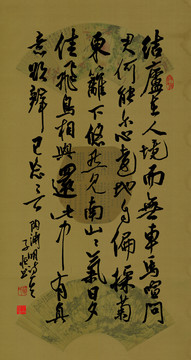 結廬在人境而無車馬喧問
君何能尔心遠地自偏採菊
東籬下悠然見南山々氣日夕
佳飛鳥相與還此中有真
意欲辨已忘言 陶渊明诗